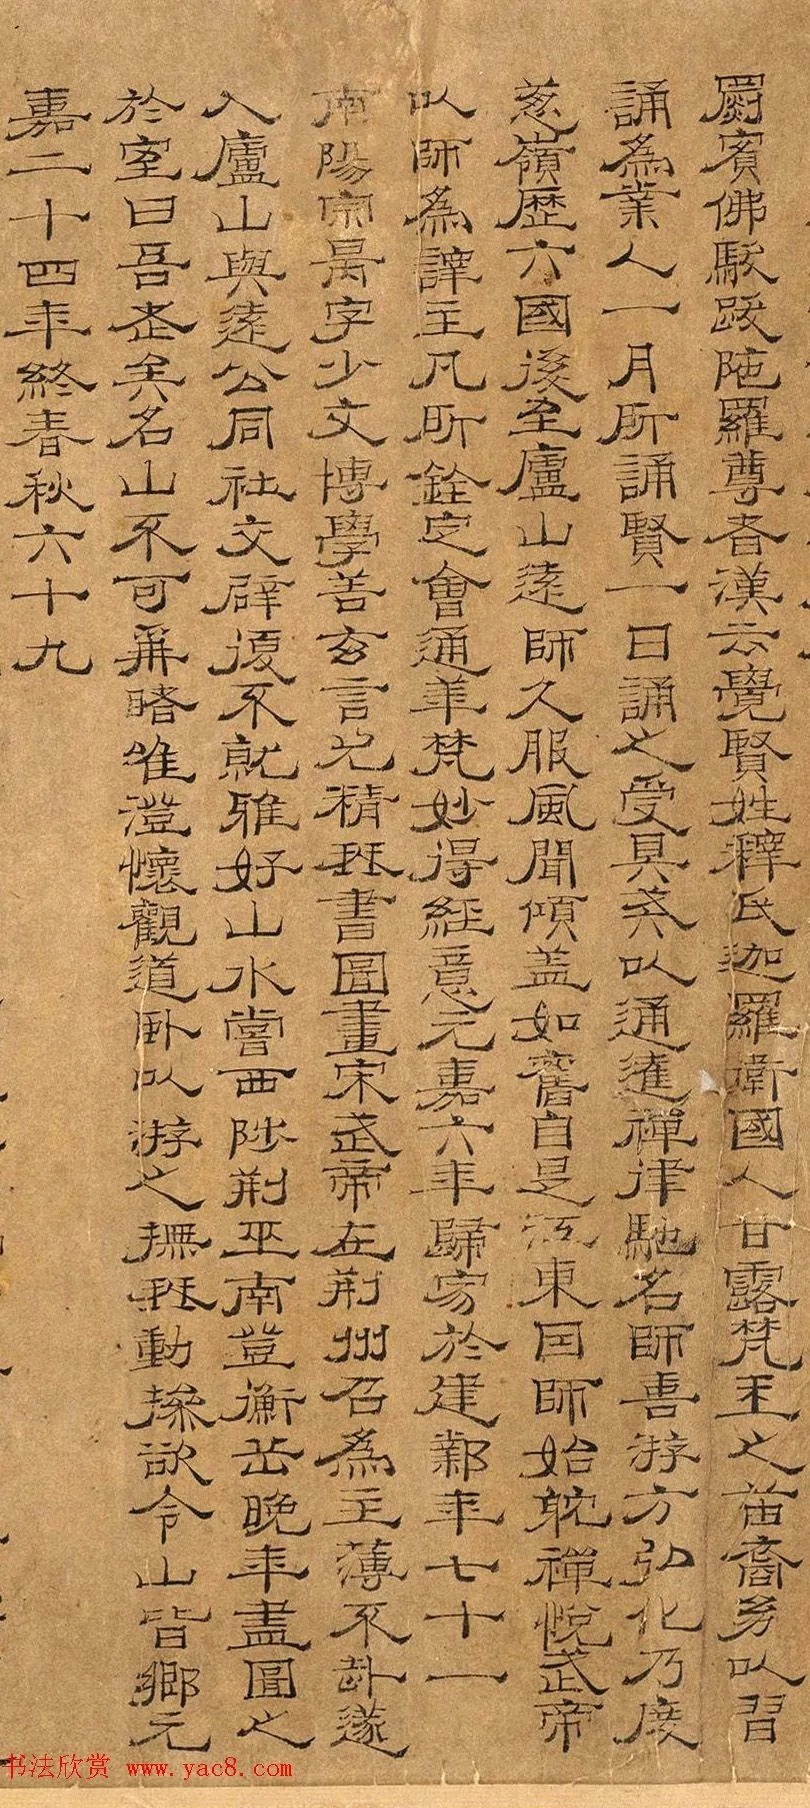 罽賓佛馱跋陁羅尊者漢云覺賢姓釋氏迦羅衛國人甘露梵王之苗裔㓜以習
誦為業人一月所誦賢一日誦之受具英以通達禪律馳名師喜游方弘化乃度
葱嶺歷六國後至廬山遠師久服風聞傾盖如舊自是江東囯師始躭禪悅武帝
以師為譯主凡所銓定會通華梵妙得經意元嘉六年歸寂於建鄴年七十一
南陽宗昺字少文博學善玄言尤精琴書圖畫宋武帝在荊州召為主薄不赴遂
入廬山與遠公同社交辟復不就雅好山水嘗西陟荊巫南登衡岳晚年畫圖之
於室曰吾老矣名山不可再略唯澄懷觀道卧以游之撫琴動操欲令山皆響元
嘉二十四年終春秋六十九
书法欣赏 www.yac8.com